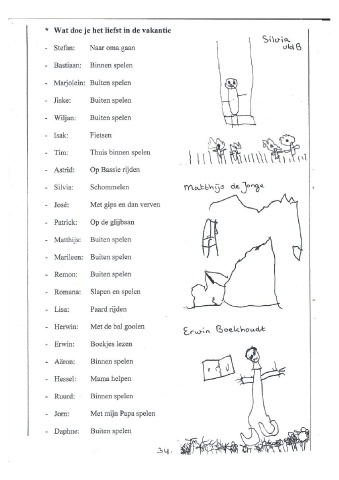 * Wat doe je het liefst in de vakantie
- Stefan: Naar oma gaan
- Bastiaan: Binnen spelen
- Marjolein: Buiten spelen
- Jiske: Buiten spelen
- Wiljan: Buiten spelen
- Isak: Fietsen
- Tim: Thuis binnen spelen
- Astrid: Op Bassie rijden
- Silvia: Schommelen
- José: Met gips en dan verven
- Patrick: Op de glijbaan
- Matthijs: Buiten spelen
- Marileen: Buiten spelen
- Remon: Buiten spelen
- Romana: Slapen en spelen
- Lisa: Paard rijden
- Herwin: Met de bal gooien
- Erwin: Boekjes lezen
- Aäron: Binnen spelen
- Hessel: Mama helpen
- Ruurd: Binnen spelen
- Jorn: Met mijn Papa spelen
- Daphne: Buiten spelen
Silvia
vld B.
Matthijs de Jonge
Erwin Boekhoudt
34.